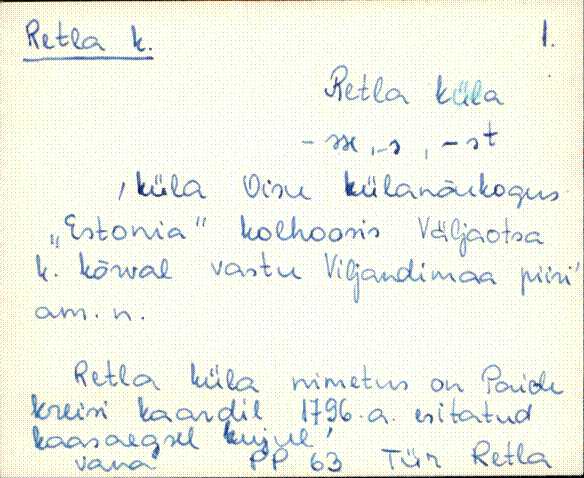 Retla k. 1.
Retla küla
- sse, -s, -st
, küla Oisu külanõukogus
„Estonia" kolhoosis Väljaotsa
k. kõrval vastu Viljandimaa piiri'
am. n.
Retla küla nimetus on Paide
kreisi kaardil 1796.a. esitatud
kaasaegsel kujul'
vana PP 63 Tür Retla